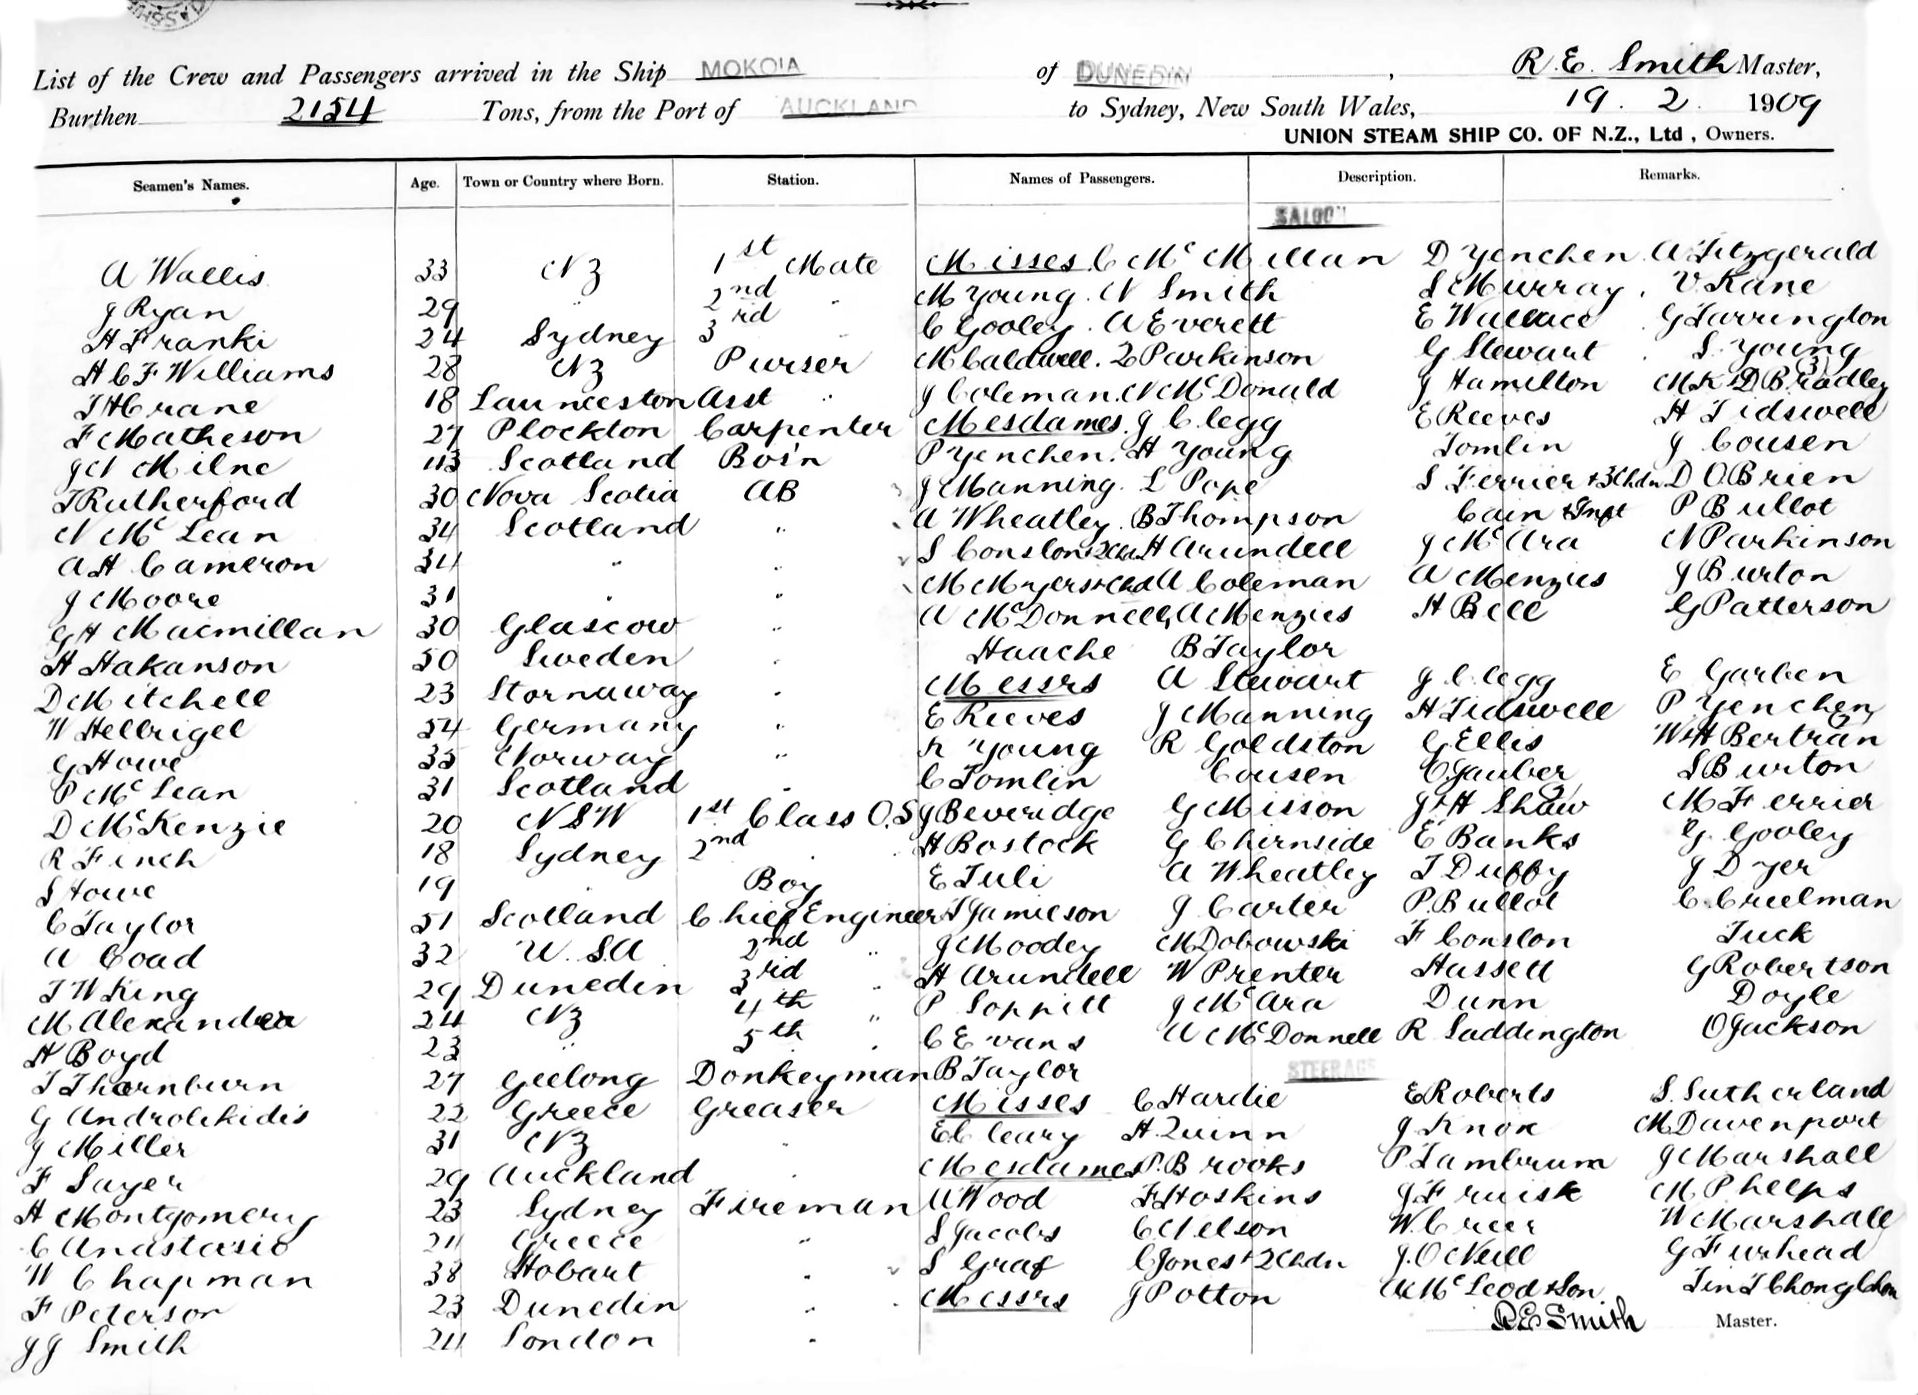 List of the Crew and Passengers arrived in the Ship MOKOIA of DUNEDIN, R. E. Smith Master,
Burthen 2154 Tons, from the Port of AUCKLAND to Sydney, New South Wales, 19. 2. 1909
UNION STEAM SHIP CO. OF N.Z., Ltd, Owners.
Seamen's Names. Age. Town or Country where Born. Station. Names of Passengers. Description. Remarks.
SALOON
A Wallis 33 NZ 1st Mate Misses C McMillan D Yenchen A Fitzgerald
J Ryan 29 " 2nd " M Young. N Smith S Murray. V Kane
H Franki 24 Sydney 3rd " C Gooley. A Everett E Wallace G Farrington
H C F Williams 28 NZ Purser M Caldwell. Q Parkinson G Stewart S. Young
T H Crane 18 Launceston Asst " J Coleman. N McDonald J Hamilton M K & D Bradley (3)
F Matheson 27 Plockton Carpenter Mesdames. J Clegg E Reeves H Tidswell
J N Milne 43 Scotland Bos'n P Yenchen. H Young Tomlin J Cousen
T Rutherford 30 Nova Scotia AB J Manning. L Pope S Ferrier + 3 Chdn D O'Brien
N McLean 34 Scotland " A Wheatley. B Thompson Cain & Inft P Bullot
A H Cameron 34 " " S Conslon H Arundell J McAra N Parkinson
J Moore 31 " " M Myers + Chd A Coleman A Menzies J Burton
G H Macmillan 30 Glascow " A McDonnell, A Menzies H Bell G Patterson
H Hakanson 50 Sweden " Haache B Taylor
D Mitchell 23 Stornaway " Messrs A Stewart J Clegg E Garben
W Hellrigel 54 Germany " E Reeves J Manning H Tidswell P Yenchen
G Howe 35 Norway " R Young R Goldston G Ellis W H Bertran
P McLean 31 Scotland " C Tomlin Cousen O. Gauber S Burton
D McKenzie 20 NSW 1st Class O.S J Beveridge G Misson J H Shaw M Ferrier
R Finch 18 Sydney 2nd " H Bostock G Chirnside E Banks G. Gooley
S Howe 19 " Boy E Tuli A Wheatley T Duffy J Dyer
C Taylor 51 Scotland Chief Engineer T Jamieson J Carter P. Bullot C. Creelman
A Coad 32 U.S.A 2nd " J Moodey M Dobowski F Conslon Tuck
T W King 29 Dunedin 3rd " H Arundell W Prenter Hassell G Robertson
M Alexandra 24 NZ 4th " P Soppitt J McAra Dunn Doyle
H Boyd 23 " 5th " C Evans A McDonnell R Saddington O Jackson
T Thornburn 27 Geelong Donkeyman B Taylor STEERAGE
G Androlikidis 22 Greece Greaser Misses C Hardie E Roberts S. Sutherland
J Miller 31 NZ " E Cleary H Quinn J Knox M Davenport
F Sayer 29 Auckland " Mesdames P. Brooks P Lambrum J Marshall
H Montgomery 23 Sydney Fireman A Wood F Hoskins J Fruisk M Phelps
C Anastasio 24 Greece " S Jacobs C Nelson W. Creer W Marshall
W Chapman 38 Hobart " S Graf C Jones + 2 Chdn J. O'Neill G Furhead
F Peterson 23 Dunedin " Messrs J Potton A McLeod & Son Tin T Chong Chon
J J Smith 24 London " R E Smith Master.